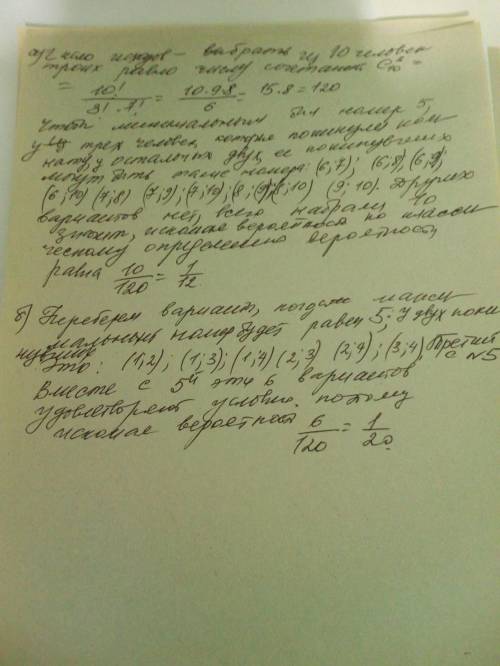 а) Число исходов - выбрать из 10 человек
троих равно числу сочетаний C =
= 10! / 3! · 7! = 10·9·8 / 6 = 15·8 = 120
Чтобы минимальным был номер 5,
у трех человек, которые покинули ком
нату, у остальных двух, ее покинувших
могут быть такие номера: (6;7); (6;8), (6;9)
(6;10) (7;8) (7;9); (7;10); (8;9) (8;10) (9;10). Других
вариантов нет, всего набрали 10
значит, искомая вероятность по класси
ческому определению вероятности
равна 10/120 = 1/12.
б) Переберем варианты, когда макси
мальным номер будет равен 5; У двух поки
нувших это: (1;2); (1;3); (1;4) (2;3) (2;4); (3;4) Третий
с №5
Вместе с 5 эти 6 вариантов
удовлетворяют условию. поэтому
искомая вероятность 6/120 = 1/20.